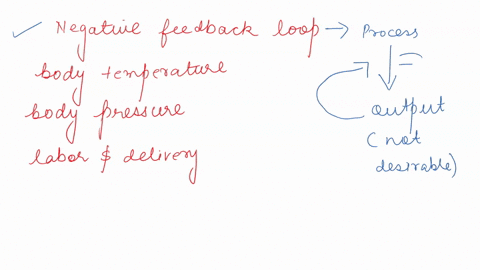 Negative feedback loop → Process
body temperature
body pressure
labor $ delivery
output
(not
desirable)